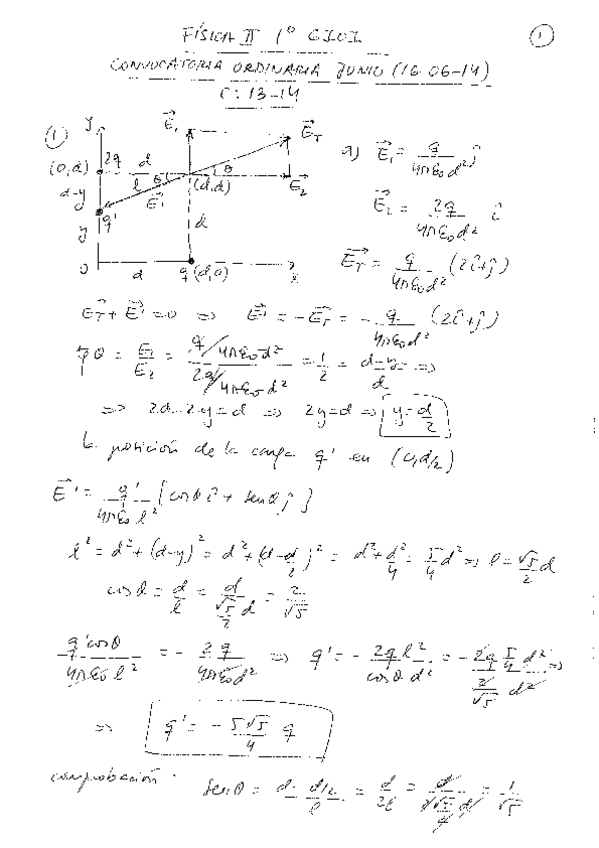 FÍSICA II 1º GIOI
①
CONVOCATORIA ORDINARIA JUNIO (16-06-14)
C: 13-14
①
y E₁ E_T
(0,d) 2q d θ
d-y l θ E' (d,d) E₂
q'
y d
0 d q (d,0) x
a) E₁ = q/(4πε₀d²) ĵ
E₂ = 2q/(4πε₀d²) î
E_T = q/(4πε₀d²) (2î+ĵ)
E_T + E' = 0 ⇒ E' = -E_T = - q/(4πε₀d²) (2î+ĵ)
tg θ = E₁/E₂ = (q/4πε₀d²)/(2q/4πε₀d²) = 1/2 = (d-y)/d ⇒
⇒ 2d-2y=d ⇒ 2y=d ⇒ y=d/2
la posición de la carga q' en (0,d/2)
E' = q'/(4πε₀ l²) [cosθ î + senθ ĵ]
l² = d²+(d-y)² = d²+(d-d/2)² = d²+d²/4 = 5/4 d² ⇒ l = √5/2 d
cos θ = d/l = d/(√5/2 d) = 2/√5
q' cosθ/(4πε₀ l²) = - 2q/(4πε₀d²) ⇒ q' = - 2q l²/(cosθ d²) = - (2q 5/4 d²)/(2/√5 d²) ⇒
⇒ q' = - 5√5/4 q
comprobación: senθ = (d-d/2)/l = d/2l = = 1/√5